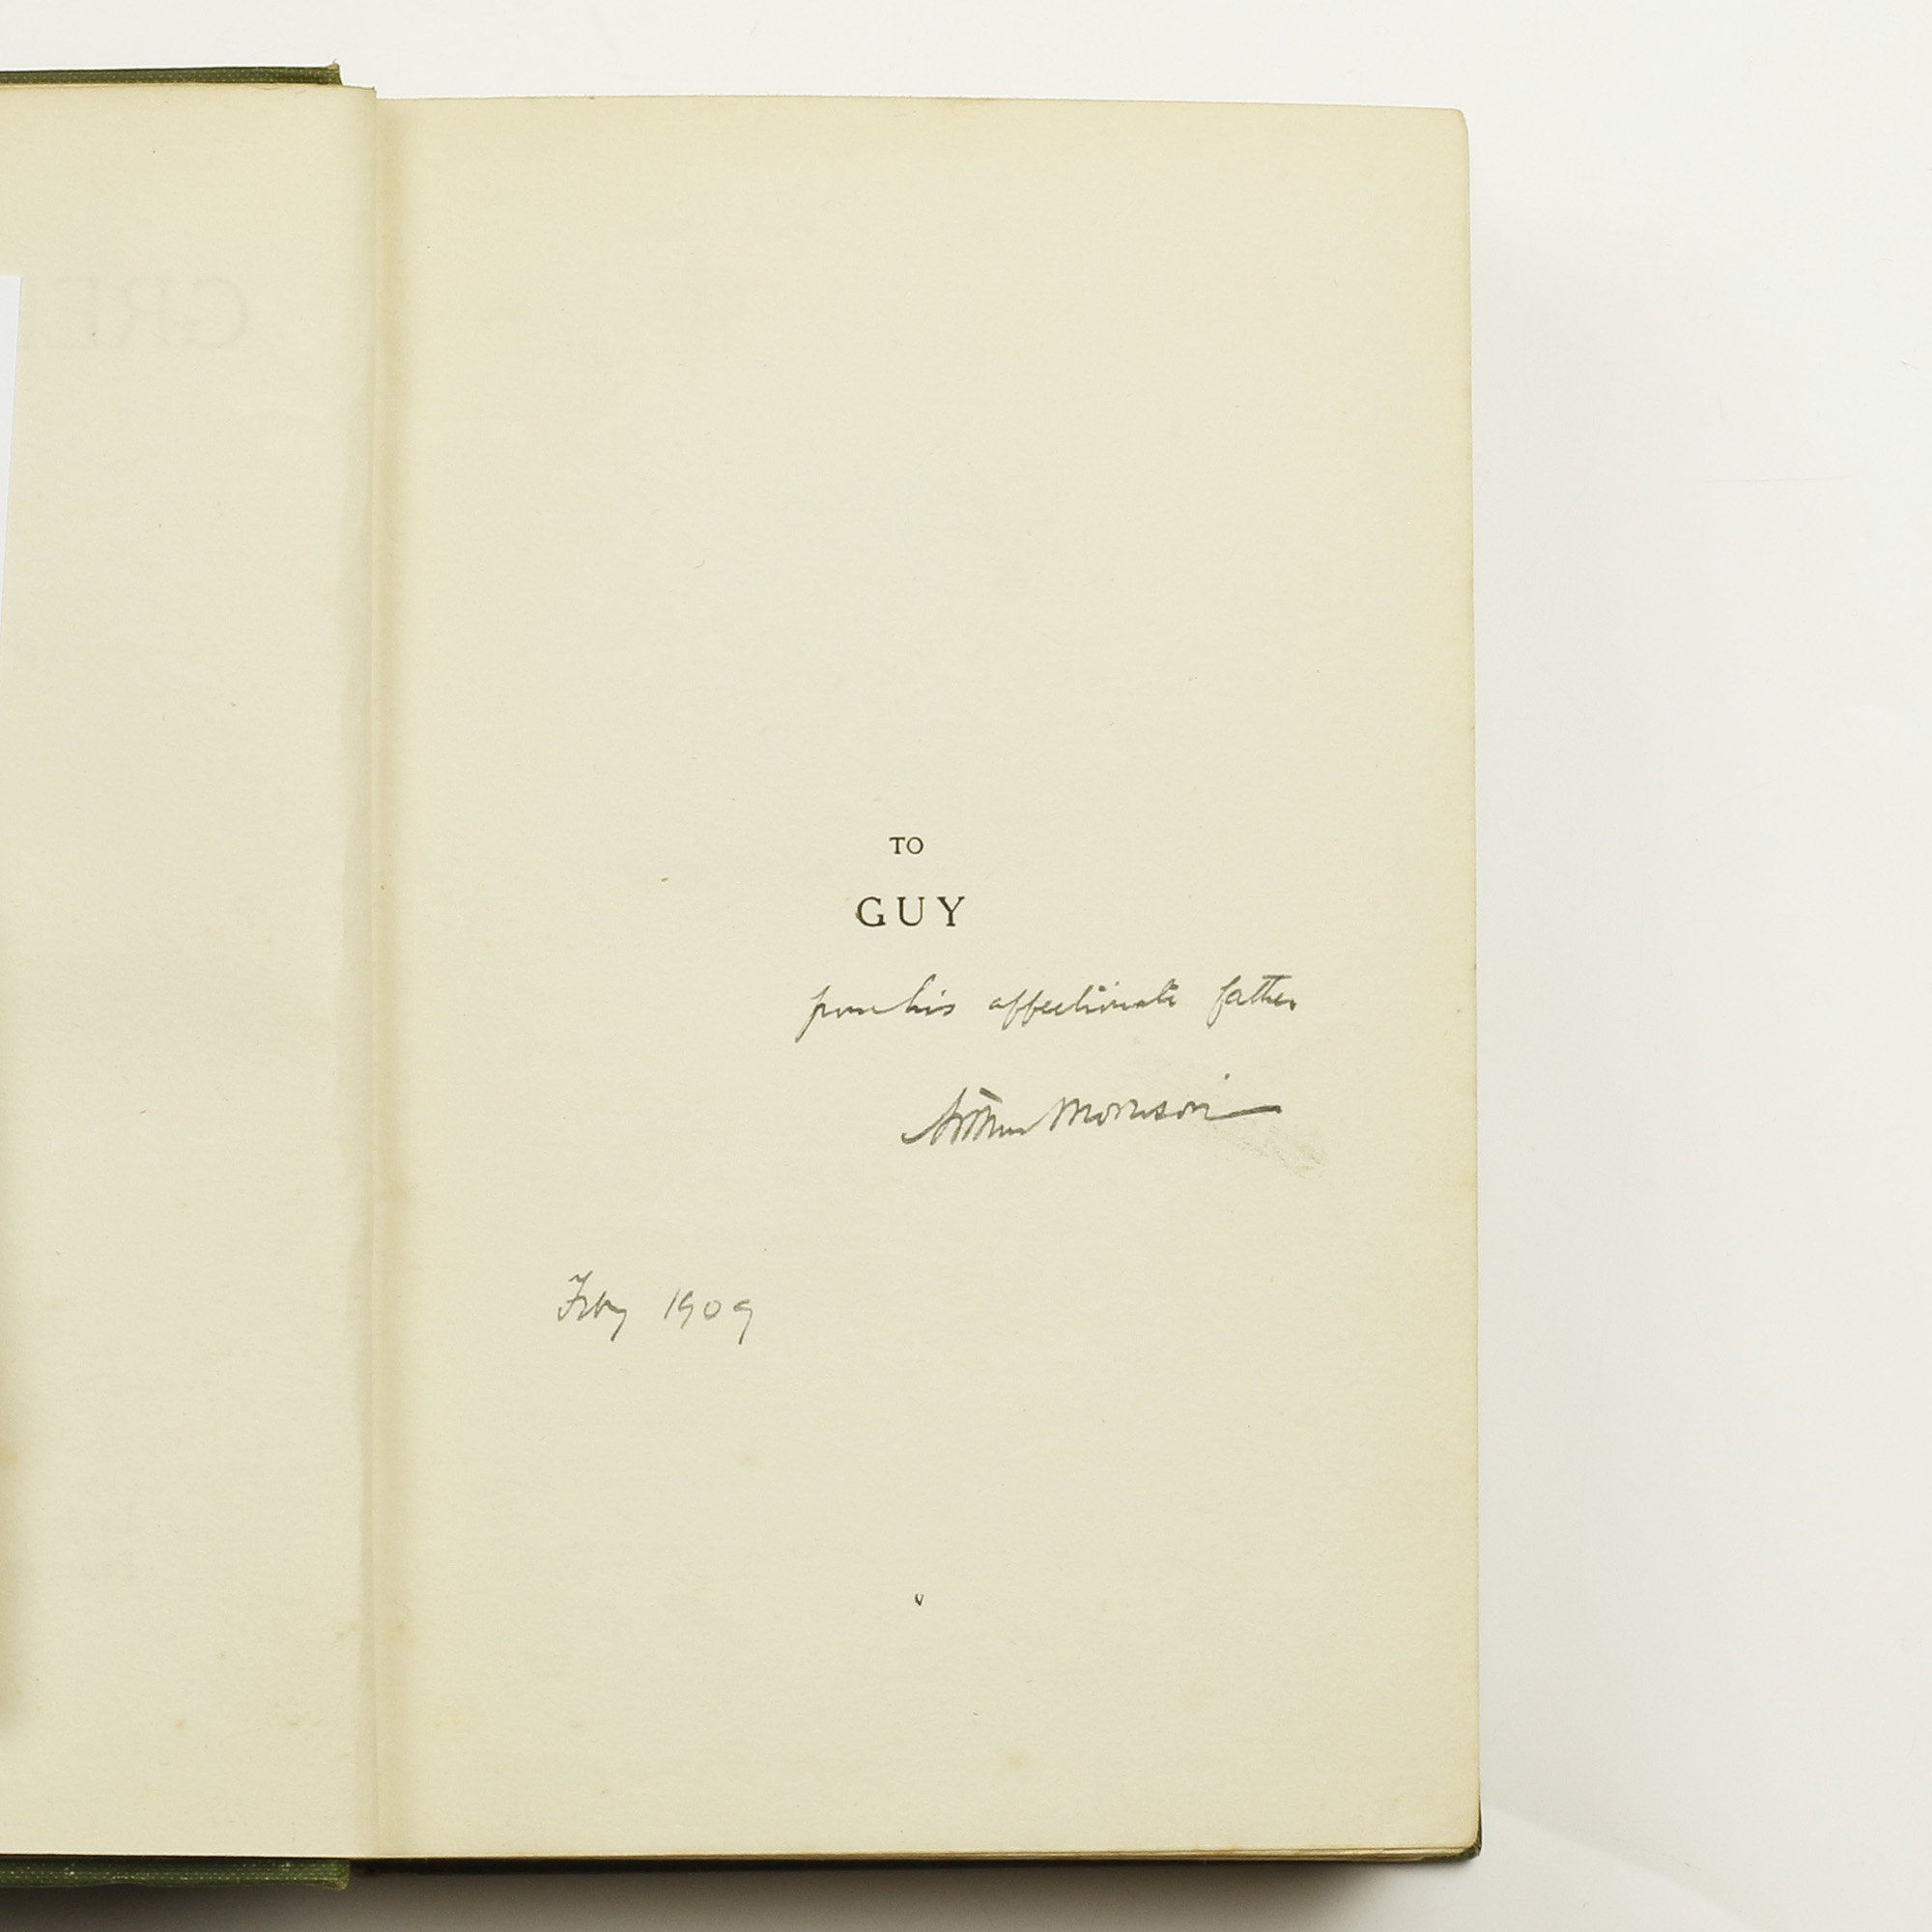 TO
GUY
from his affectionate father
Arthur Morrison
Feby 1909
v